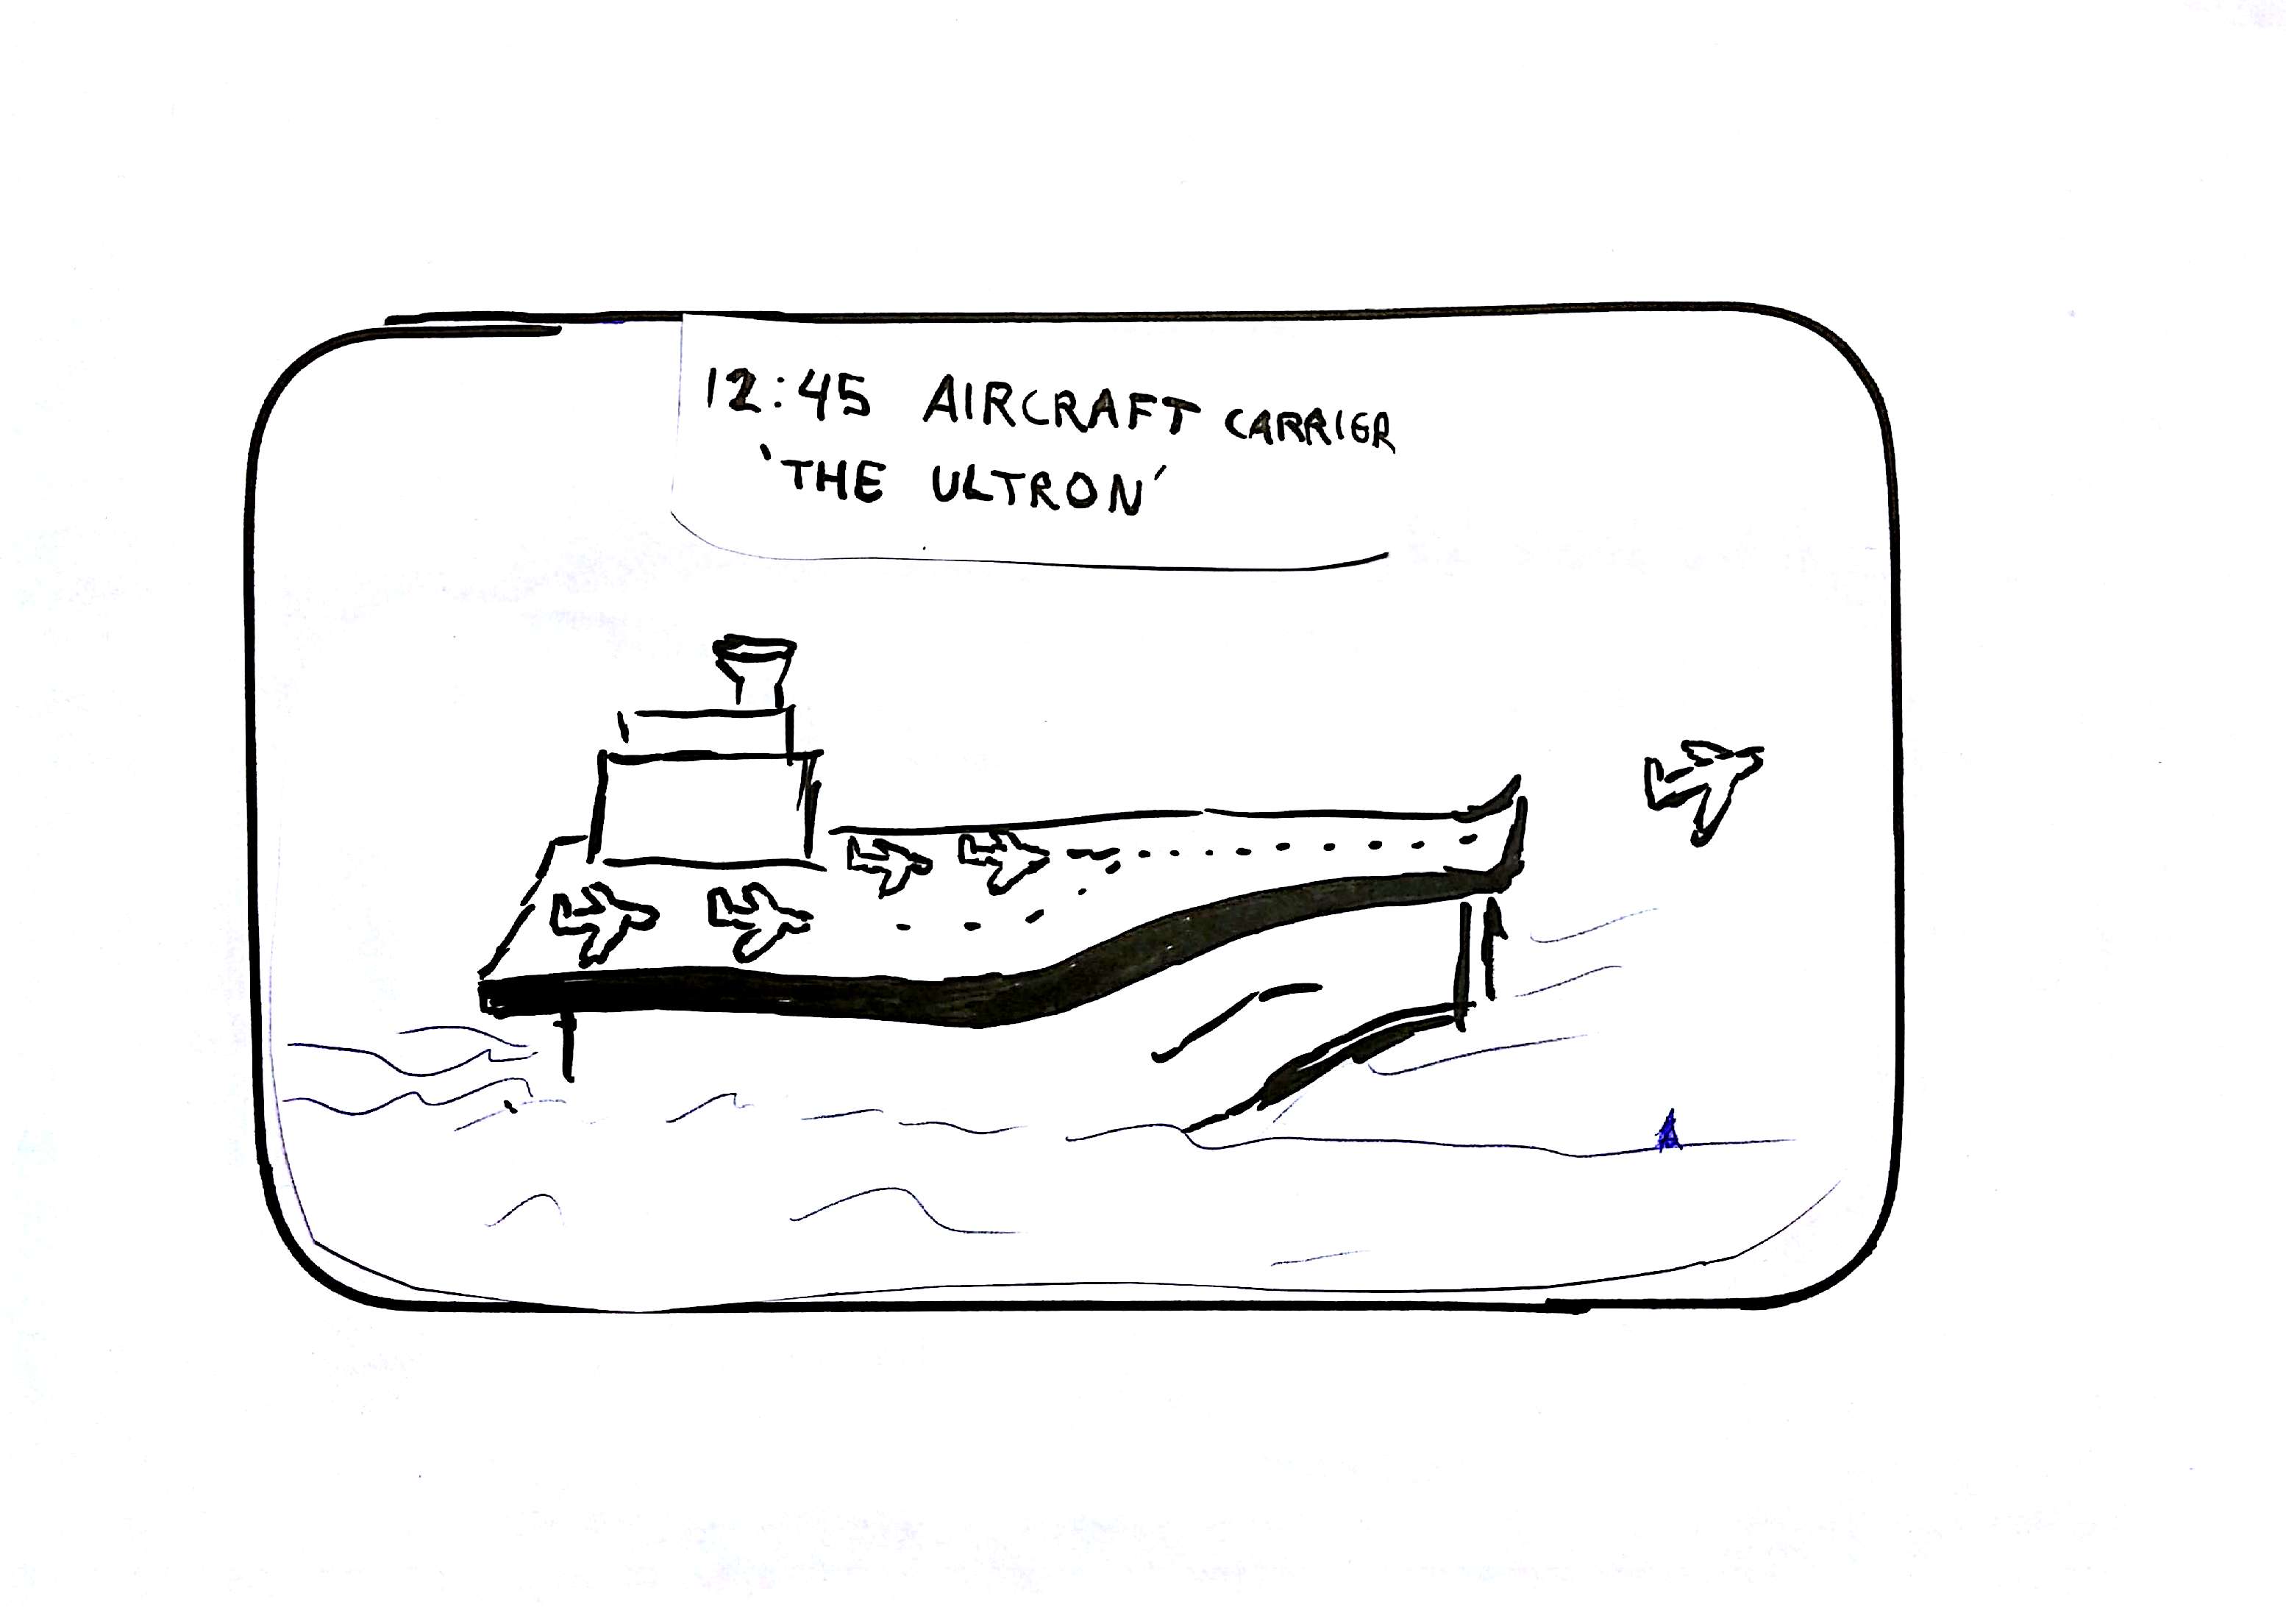 12:45 AIRCRAFT CARRIER
'THE ULTRON'